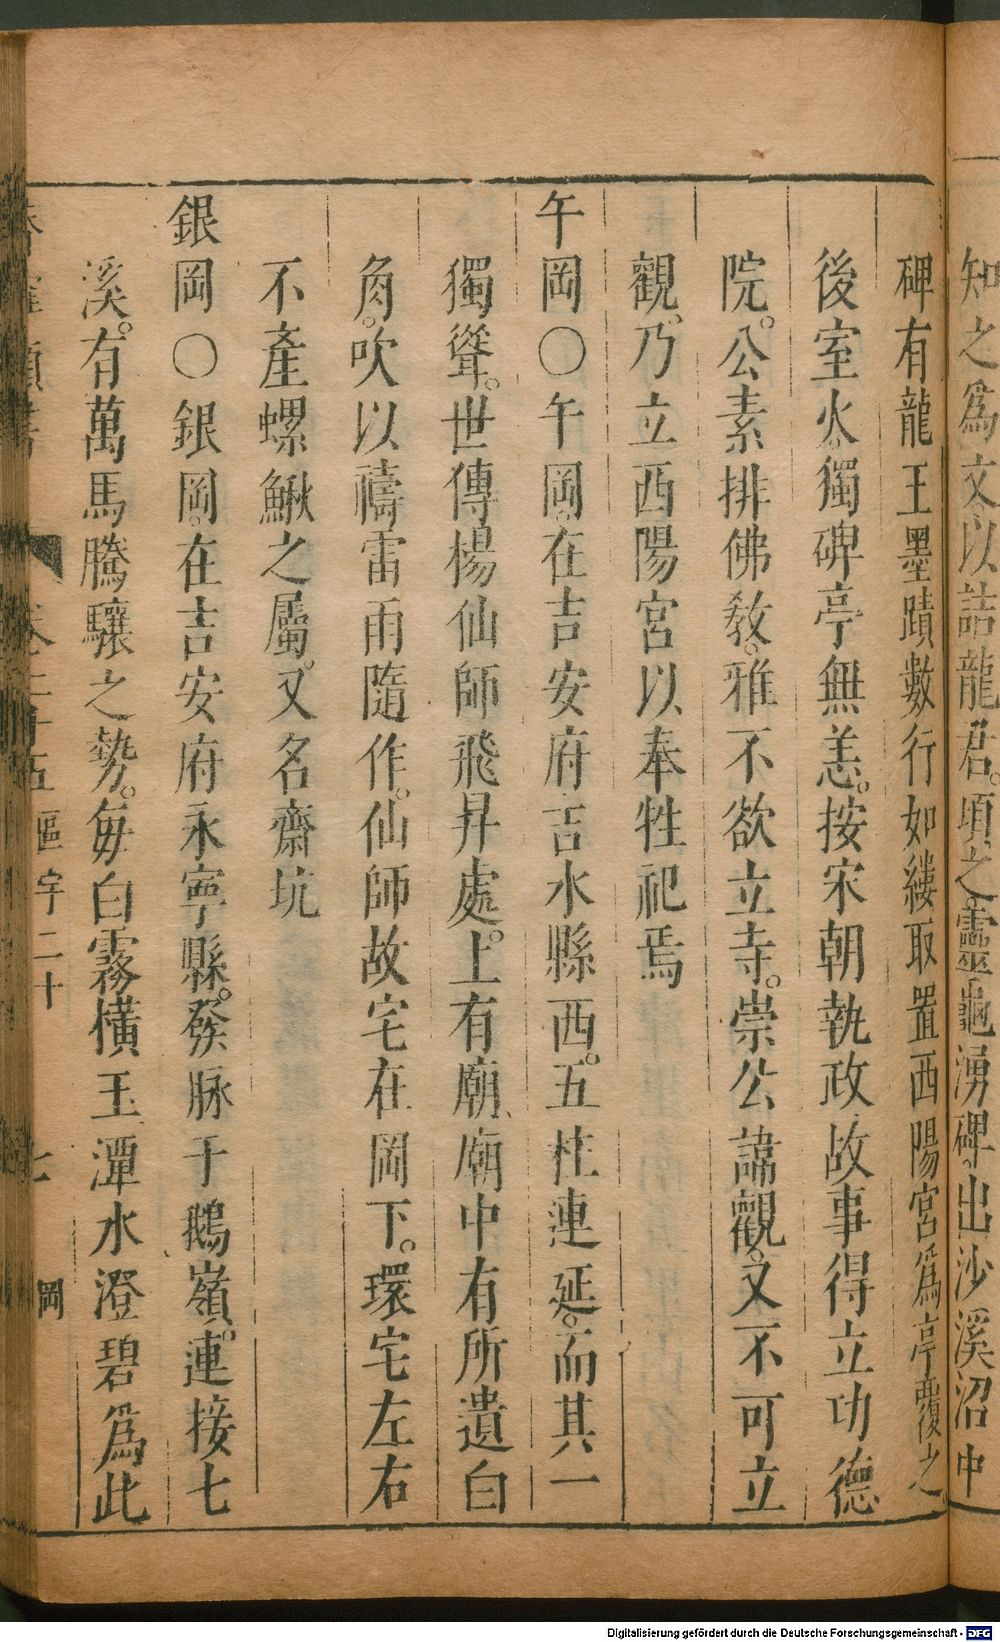 知之爲文以詰龍君頃之靈龜湧碑出沙溪沼中
碑有龍王墨蹟數行如縷取置西陽宮爲亭覆之
後室火獨碑亭無恙按宋朝執政故事得立功德
院公素排佛教雅不欲立寺崇公諱觀又不可立
觀乃立西陽宮以奉牲祀焉
午岡〇午岡在吉安府吉水縣西五柱連延而其一
獨聳世傳楊仙師飛昇處上有廟廟中有所遺白
角吹以禱雷雨隨作仙師故宅在岡下環宅左右
不產螺鰍之屬又名齋坑
銀岡〇銀岡在吉安府永寧縣發脉于鵝嶺連接七
溪有萬馬騰驤之勢每白霧橫玉潭水澄碧爲此
卷二十五 謳字二十 七 岡
Digitalisierung gefördert durch die Deutsche Forschungsgemeinschaft - DFG